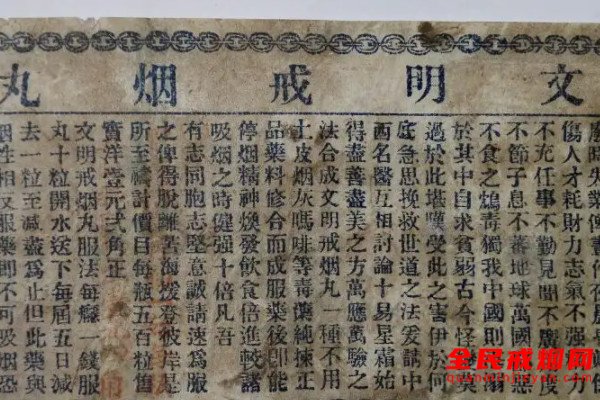 文明戒烟丸
廢時失業俾晝作夜
傷人才耗財力志氣不强力
不充任事不勤見聞不廣度
不節子息不蕃地球萬國
不食之鴆毒獨我中國則
於其中自求貧弱古今怪莫
過於此堪嘆受此之害伊於何
底急思挽救世道之法爰請中
西名醫互相討論十易星霜始
得盡善盡美之方萬應萬驗之
法合成文明戒烟丸一種不用
土皮烟灰嗎啡等毒藥純揀正
品藥料修合而成服藥後即能
停烟精神煥發飲食倍進較諸
吸烟之時健强十倍凡吾
有志同胞志堅意誠請速爲服
之俾得脫離苦海援登彼岸是
所至禱計價目每瓶五百粒售
實洋壹元弍角正
文明戒烟丸服法每癮一錢服
丸十粒開水送下每届五日減
去一粒至減盡爲止但此藥與
烟性相反服藥即不可吸烟恐
全民戒烟网